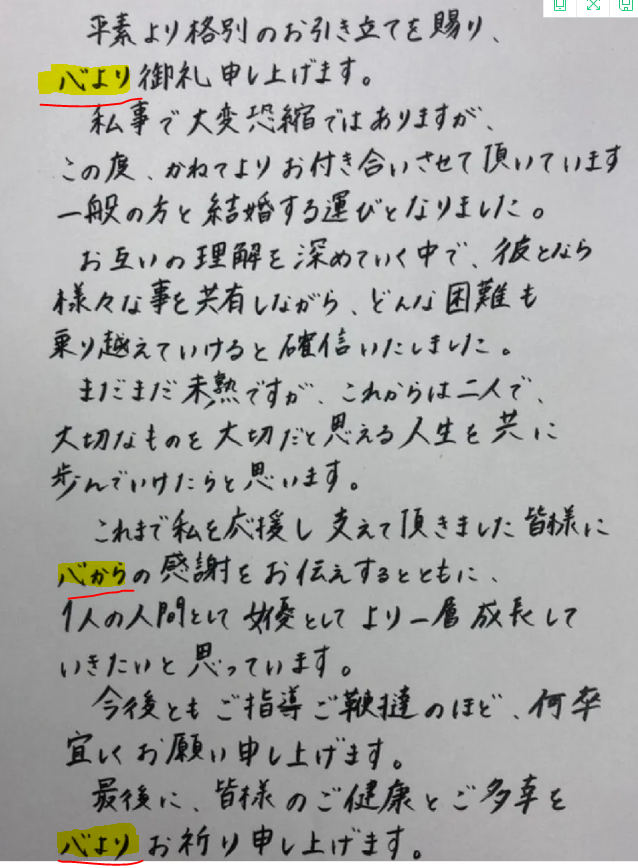 平素より格別のお引き立てを賜り、
心より御礼申し上げます。
私事で大変恐縮ではありますが、
この度、かねてよりお付き合いさせて頂いています
一般の方と結婚する運びとなりました。
お互いの理解を深めていく中で、彼となら
様々な事を共有しながら、どんな困難も
乗り越えていけると確信いたしました。
まだまだ未熟ですが、これからは二人で、
大切なものを大切だと思える人生を共に
歩んでいけたらと思います。
これまで私を応援し支えて頂きました皆様に
心からの感謝をお伝えするとともに、
1人の人間として女優としてより一層成長して
いきたいと思っています。
今後ともご指導ご鞭撻のほど、何卒
宜しくお願い申し上げます。
最後に、皆様のご健康とご多幸を
心よりお祈り申し上げます。